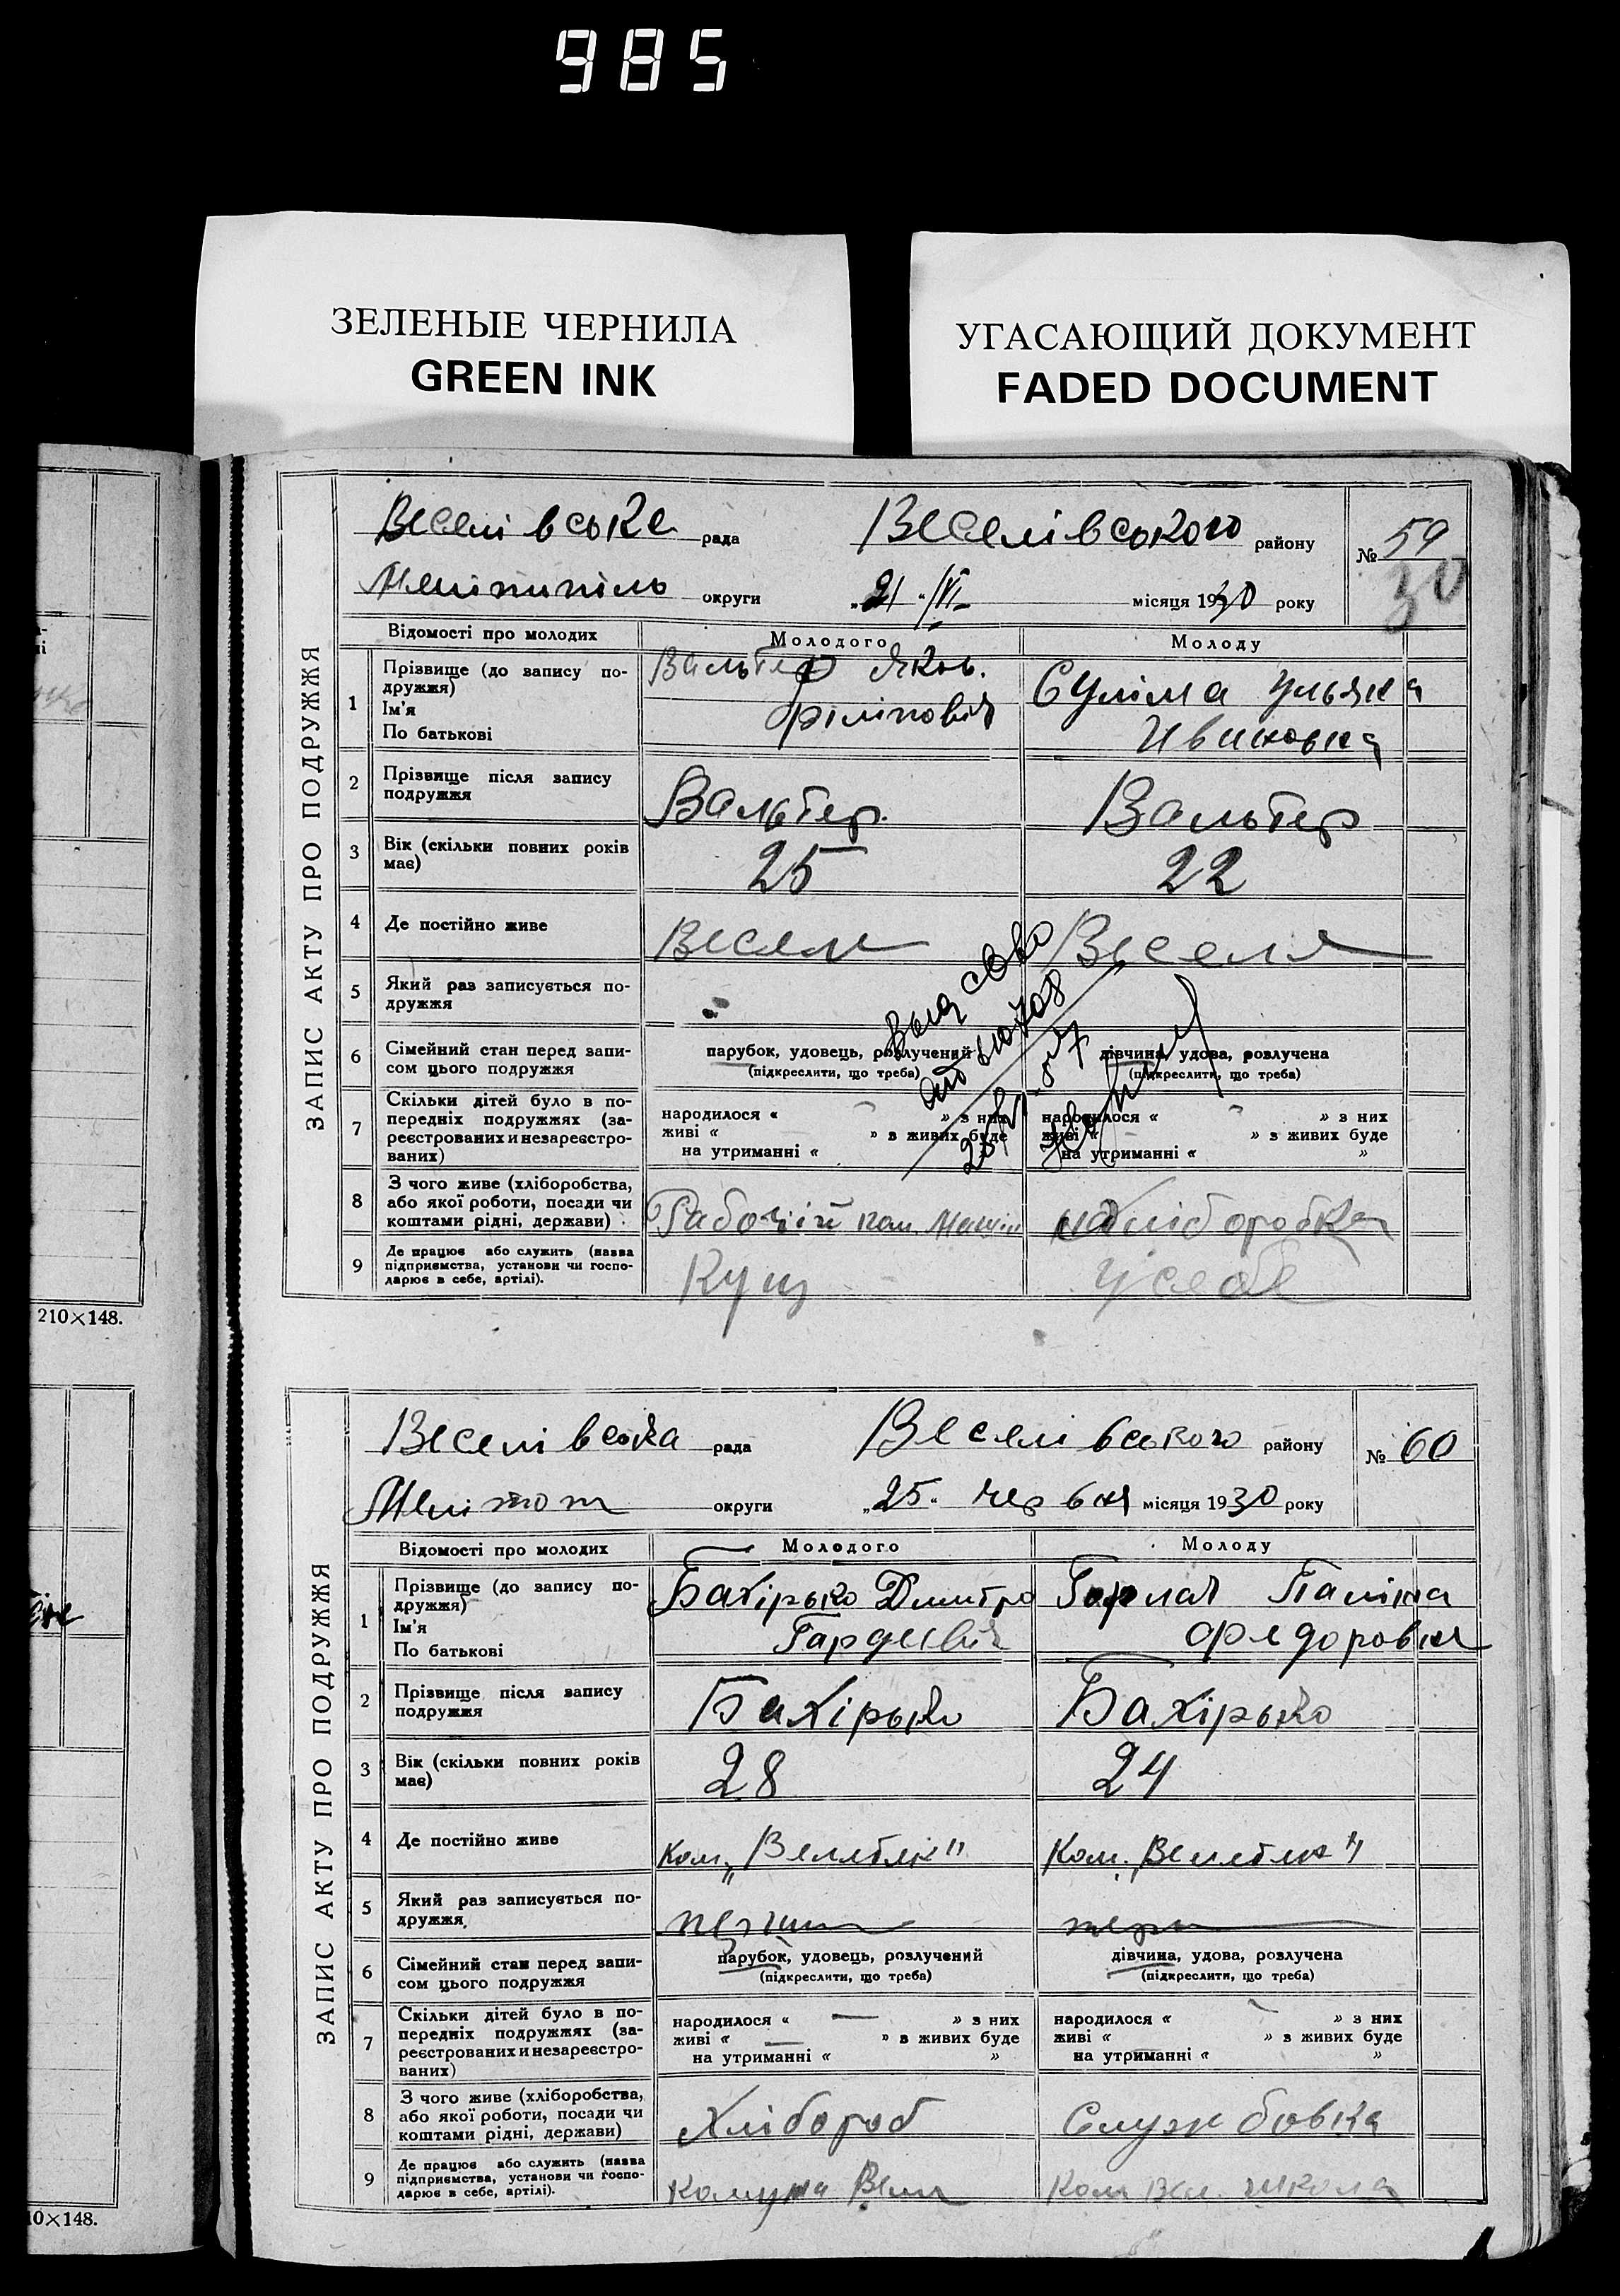 985
ЗЕЛЕНЫЕ ЧЕРНИЛА
GREEN INK
УГАСАЮЩИЙ ДОКУМЕНТ
FADED DOCUMENT
ЗАПИС АКТУ ПРО ПОДРУЖЖЯ
Веселівська рада Веселівського району № 59
30
округи „21" /VI місяця 1930 року
Відомості про молодих Молодого Молоду
1 Прізвище (до запису подружжя) Вальтер Яков. Суліма Ульяна
Ім'я Філіпович Ивановна
По батькові
2 Прізвище після запису
подружжя Вальтер Вальтер
3 Вік (скільки повних років
має) 25 22
4 Де постійно живе Веселе Веселе
5 Який раз записується по-
дружжя
6 Сімейний стан перед запи-
сом цього подружжя
парубок, удовець, розлучений дівчина, удова, розлучена
(підкреслити, що треба) (підкреслити, що треба)
7 Скільки дітей було в по-
передніх подружжях (за-
реєстрованих и незареєстро-
ваних)
народилося « » з них народилося « » з них
живі « » з живих буде живі « » з живих буде
на утриманні « на утриманні « »
8 З чого живе (хліборобства,
або якої роботи, посади чи
коштами рідні, держави) Рабочій хліборобка
9 Де працює або служить (назва
підприємства, установи чи госпо-
дарює в себе, артілі). Кущ У себе
210×148.
ЗАПИС АКТУ ПРО ПОДРУЖЖЯ
Веселівська рада Веселівського району № 60
Мелітоп округи „25" червня місяця 1930 року
Відомості про молодих Молодого Молоду
1 Прізвище (до запису по-
дружжя) Бахірько Дмитро Горлач Паліна
Ім'я Гордеєвіч Федоровня
По батькові
2 Прізвище після запису
подружжя Бахірько Бахірько
3 Вік (скільки повних років
має) 28 24
4 Де постійно живе Ком. Ком.
5 Який раз записується по-
дружжя перши перш
6 Сімейний стан перед запи-
сом цього подружжя
парубок, удовець, розлучений дівчина, удова, розлучена
(підкреслити, що треба) (підкреслити, що треба)
7 Скільки дітей було в по-
передніх подружжях (за-
реєстрованих и незареєстро-
ваних)
народилося « — » з них народилося « » з них
живі « — » з живих буде живі « » з живих буде
на утриманні « » на утриманні « »
8 З чого живе (хліборобства,
або якої роботи, посади чи
коштами рідні, держави) Хлібороб Службовка
9 Де працює або служить (назва
підприємства, установи чи госпо-
дарює в себе, артілі). Комуна Вел Ком Вел. школа
10×148.